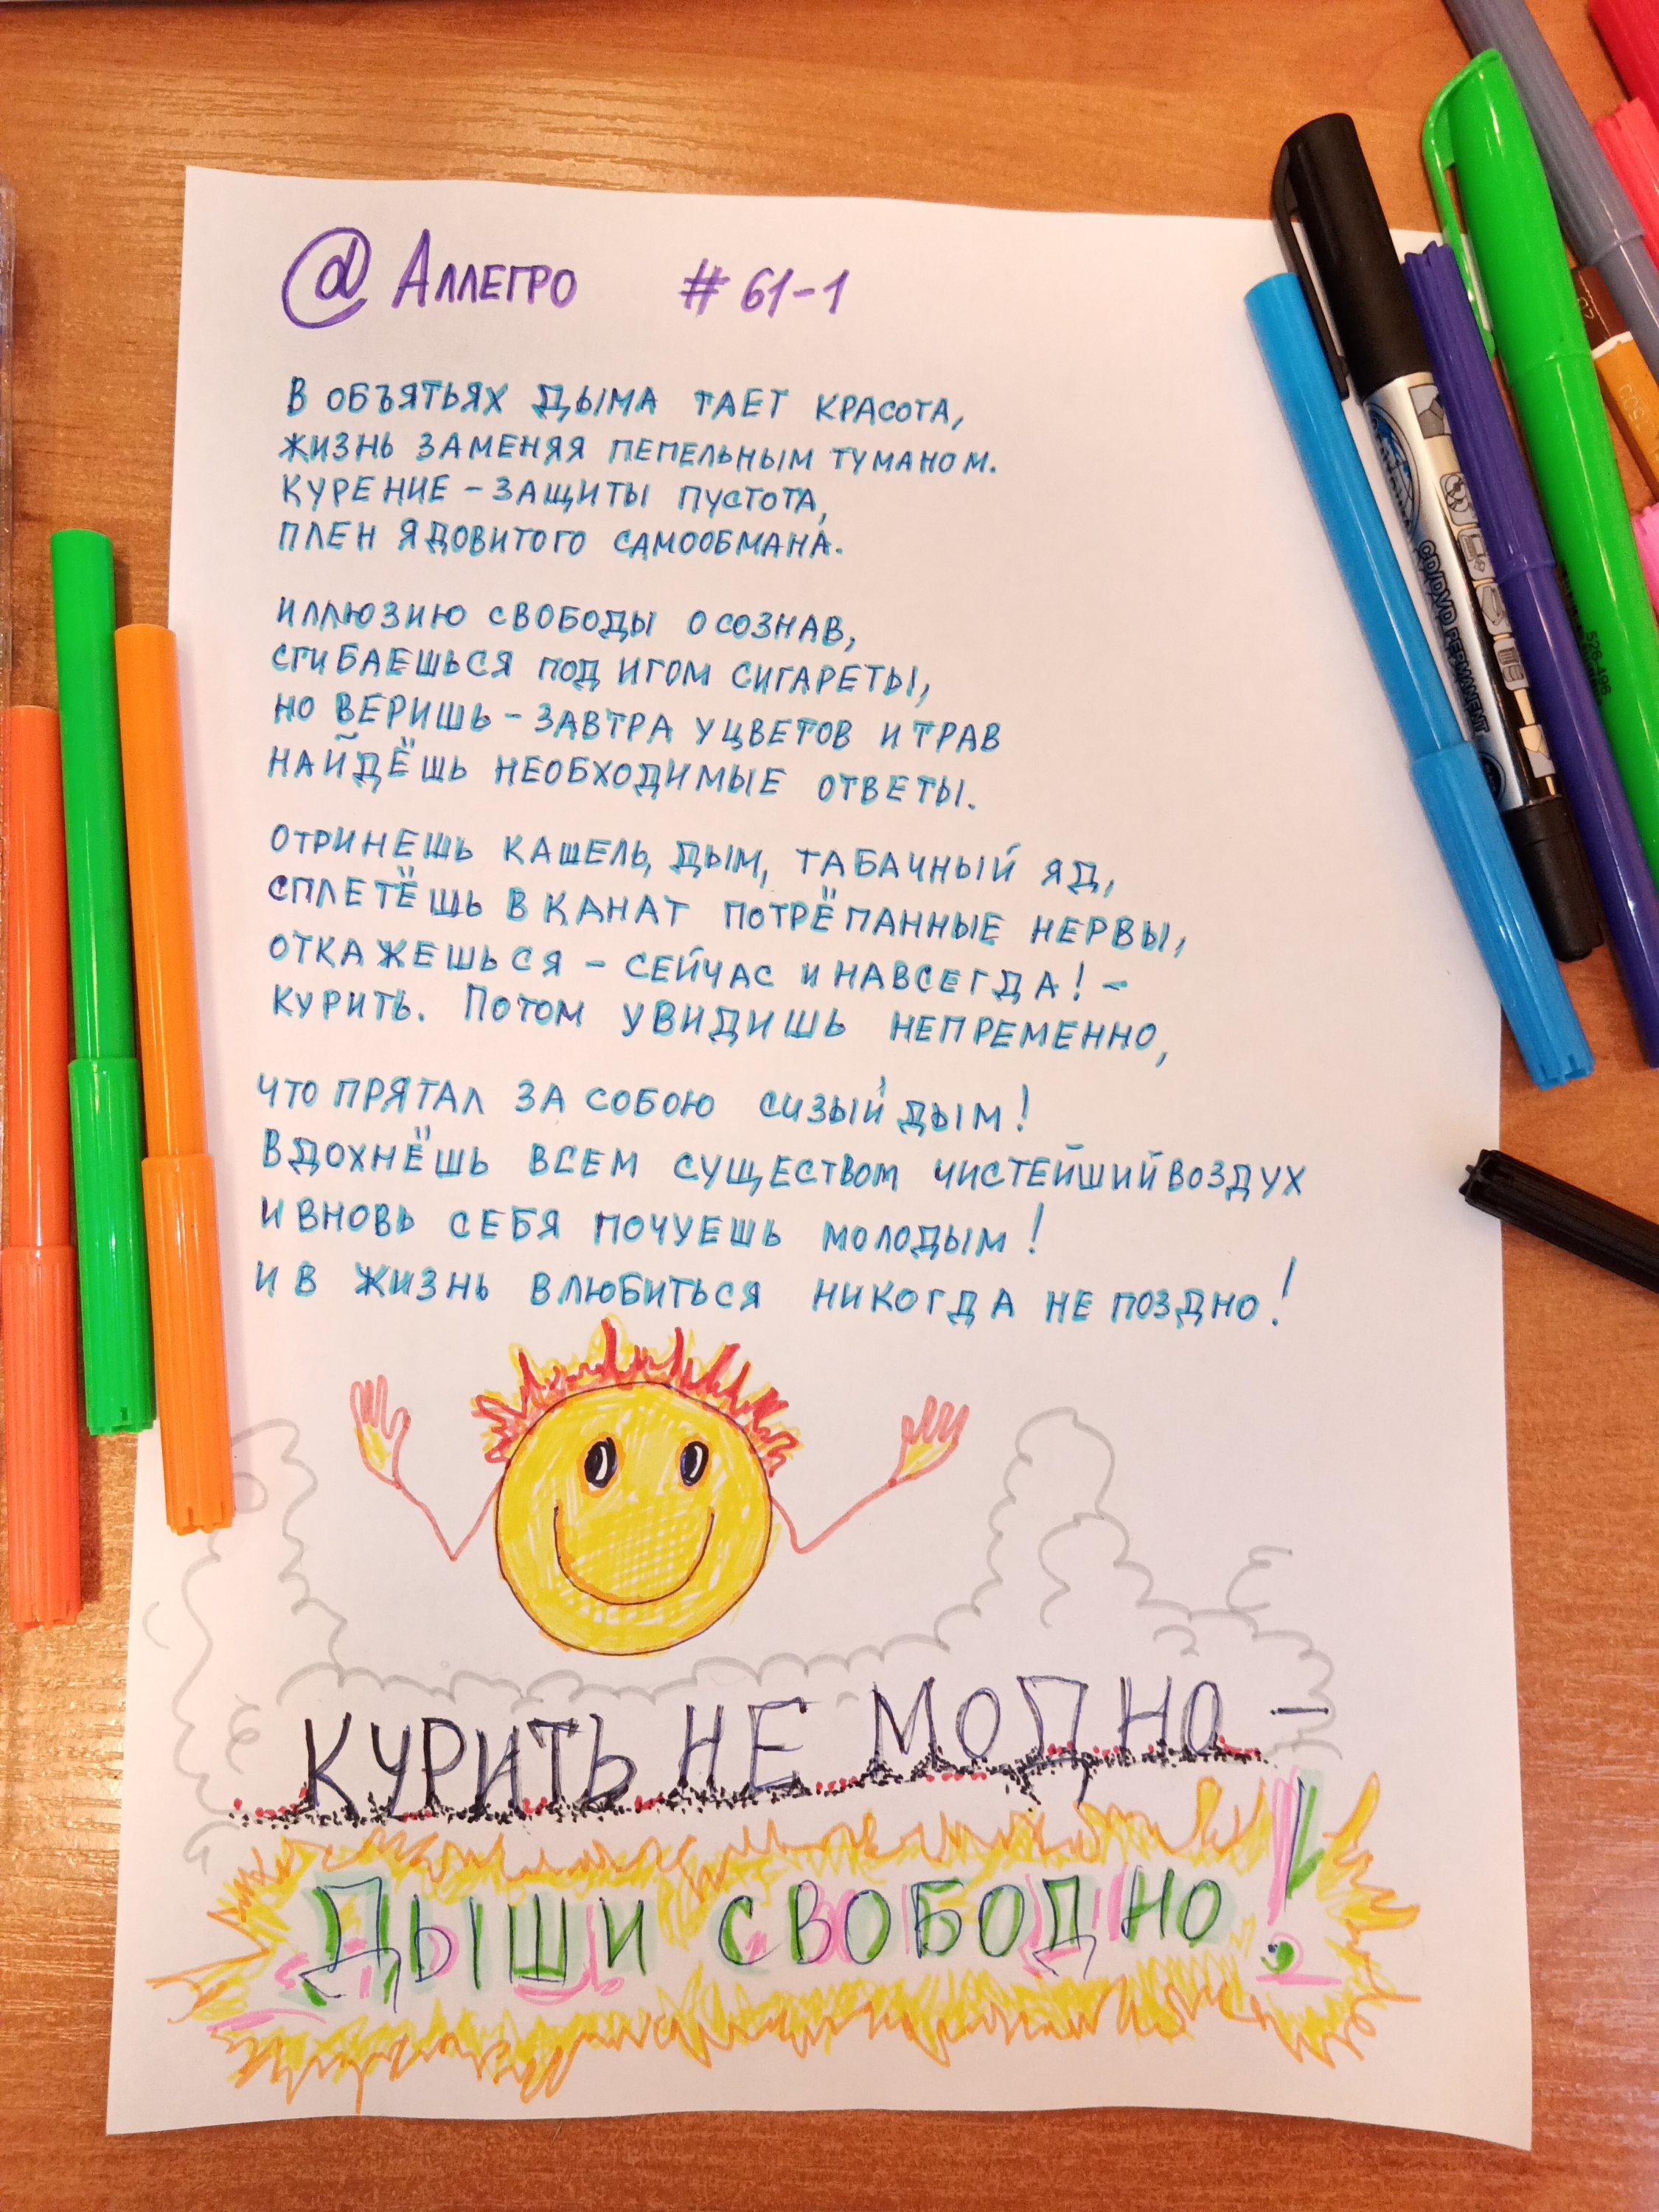 @ Аллегро #61-1
В ОБЪЯТЬЯХ ДЫМА ТАЕТ КРАСОТА,
ЖИЗНЬ ЗАМЕНЯЯ ПЕПЕЛЬНЫМ ТУМАНОМ.
КУРЕНИЕ – ЗАЩИТЫ ПУСТОТА,
ПЛЕН ЯДОВИТОГО САМООБМАНА.
ИЛЛЮЗИЮ СВОБОДЫ ОСОЗНАВ,
СГИБАЕШЬСЯ ПОД ИГОМ СИГАРЕТЫ,
НО ВЕРИШЬ – ЗАВТРА У ЦВЕТОВ И ТРАВ
НАЙДЁШЬ НЕОБХОДИМЫЕ ОТВЕТЫ.
ОТРИНЕШЬ КАШЕЛЬ, ДЫМ, ТАБАЧНЫЙ ЯД,
СПЛЕТЁШЬ В КАНАТ ПОТРЁПАННЫЕ НЕРВЫ,
ОТКАЖЕШЬСЯ – СЕЙЧАС И НАВСЕГДА! –
КУРИТЬ. ПОТОМ УВИДИШЬ НЕПРЕМЕННО,
ЧТО ПРЯТАЛ ЗА СОБОЮ СИЗЫЙ ДЫМ!
ВДОХНЁШЬ ВСЕМ СУЩЕСТВОМ ЧИСТЕЙШИЙ ВОЗДУХ
И ВНОВЬ СЕБЯ ПОЧУЕШЬ МОЛОДЫМ!
И В ЖИЗНЬ ВЛЮБИТЬСЯ НИКОГДА НЕ ПОЗДНО!
КУРИТЬ НЕ МОДНО –
ДЫШИ СВОБОДНО!
CD/DVD PERMANENT